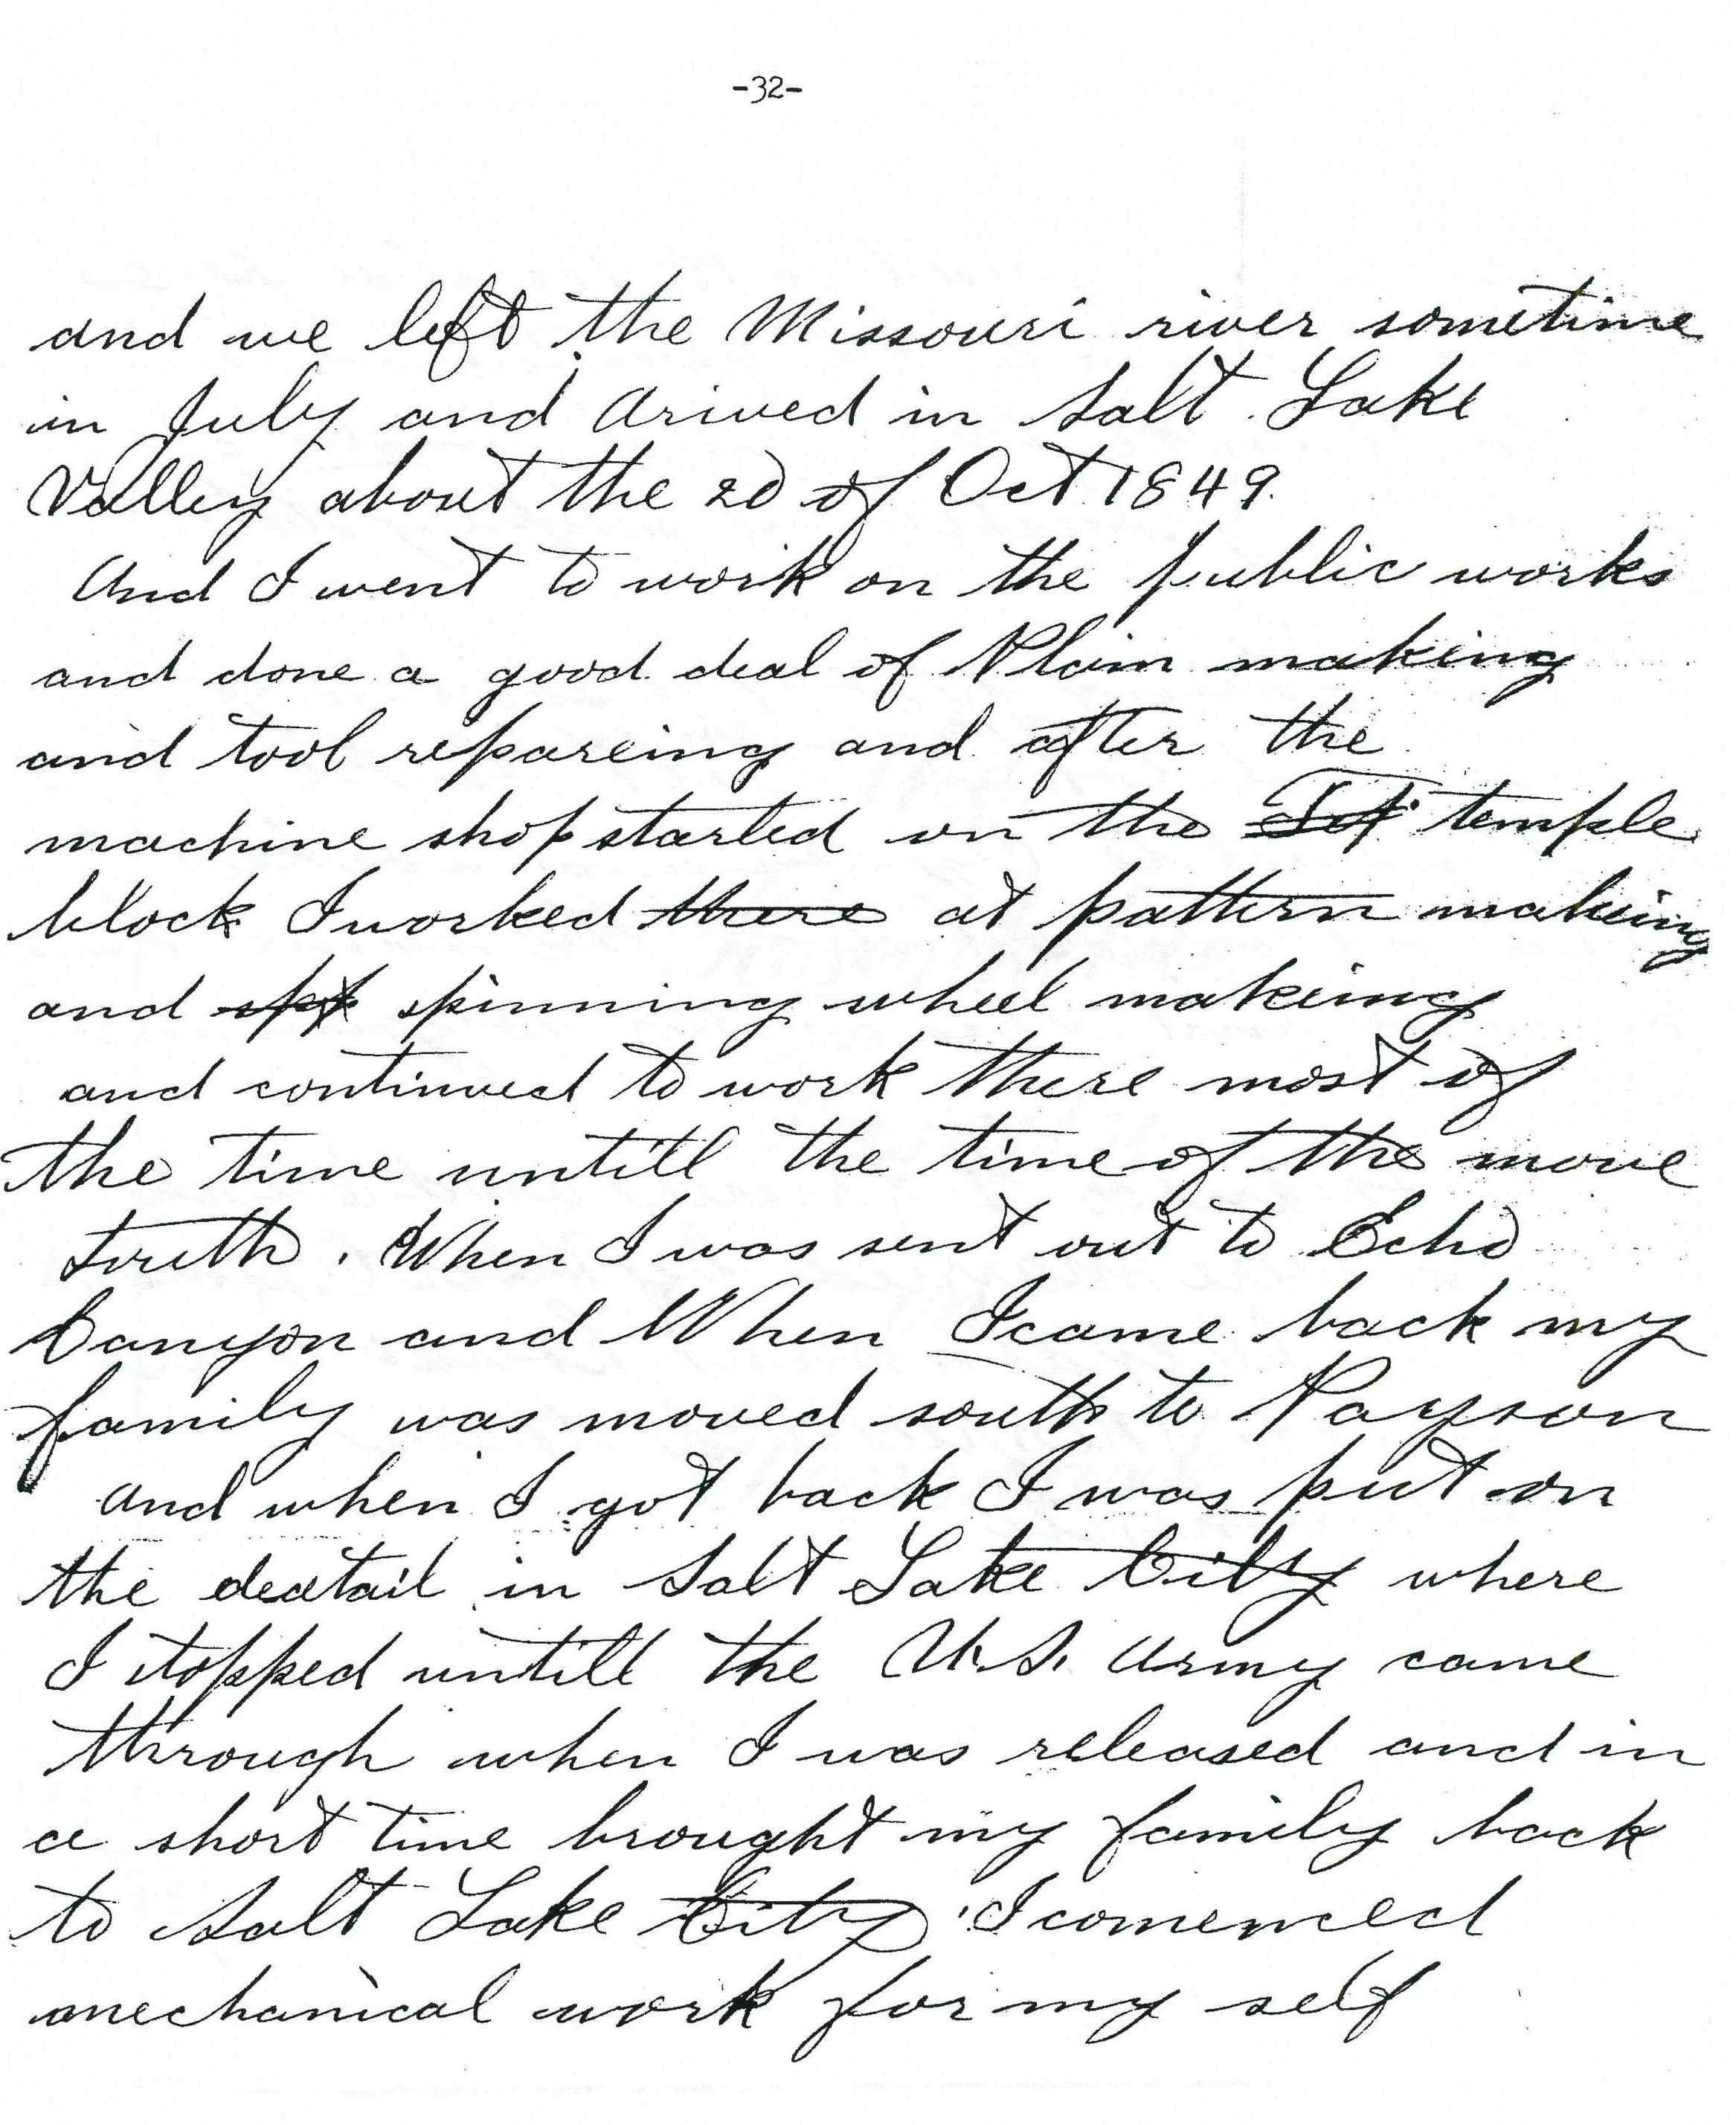 -32-
and we left the Missouri river sometime
in July and Arived in Salt Lake
Valley about the 20 of Oct 1849.
And I went to work on the public works
and done a good deal of Plain making
and tool repareing and after the
machine shop started on the temple
block I worked there at pattern making
and spinning wheel makeing
and continued to work there most of
the time untill the time of the move
South. When I was sent out to Echo
Canyon and When I came back my
family was moved south to Payson
and when I got back I was put on
the deatail in Salt Lake City where
I stopped untill the U.S. Army came
through when I was released and in
a short time brought my family back
to Salt Lake City. I comenced
mechanical work for my self